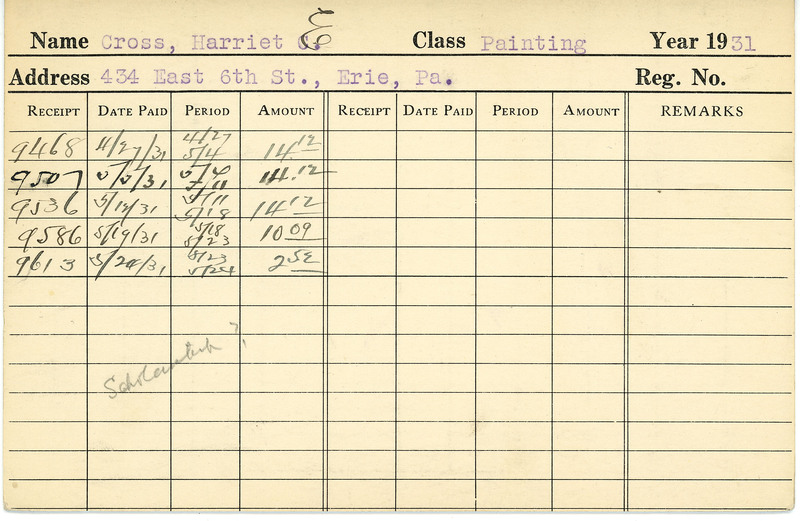 Name Cross, Harriet E. Class Painting Year 1931
Address 434 East 6th St., Erie, Pa. Reg. No.
RECEIPT DATE PAID PERIOD AMOUNT RECEIPT DATE PAID PERIOD AMOUNT REMARKS
9468 4/27/31 4/27 5/4 14.12
9507 5/5/31 5/4 5/11 14.12
9536 5/12/31 5/11 5/18 14 12
9586 5/19/31 5/18 5/23 10 09
9613 5/24/31 5/23 5/24 2 52
Scholarship ?